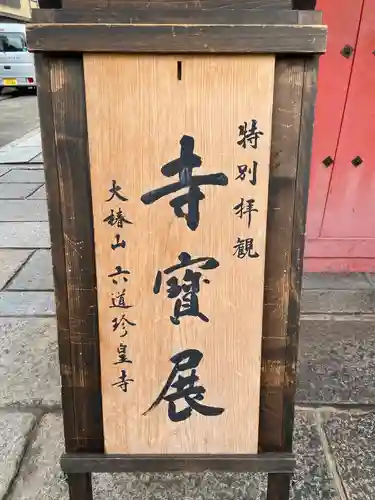 特別拝観
寺寳展
大椿山六道珍皇寺